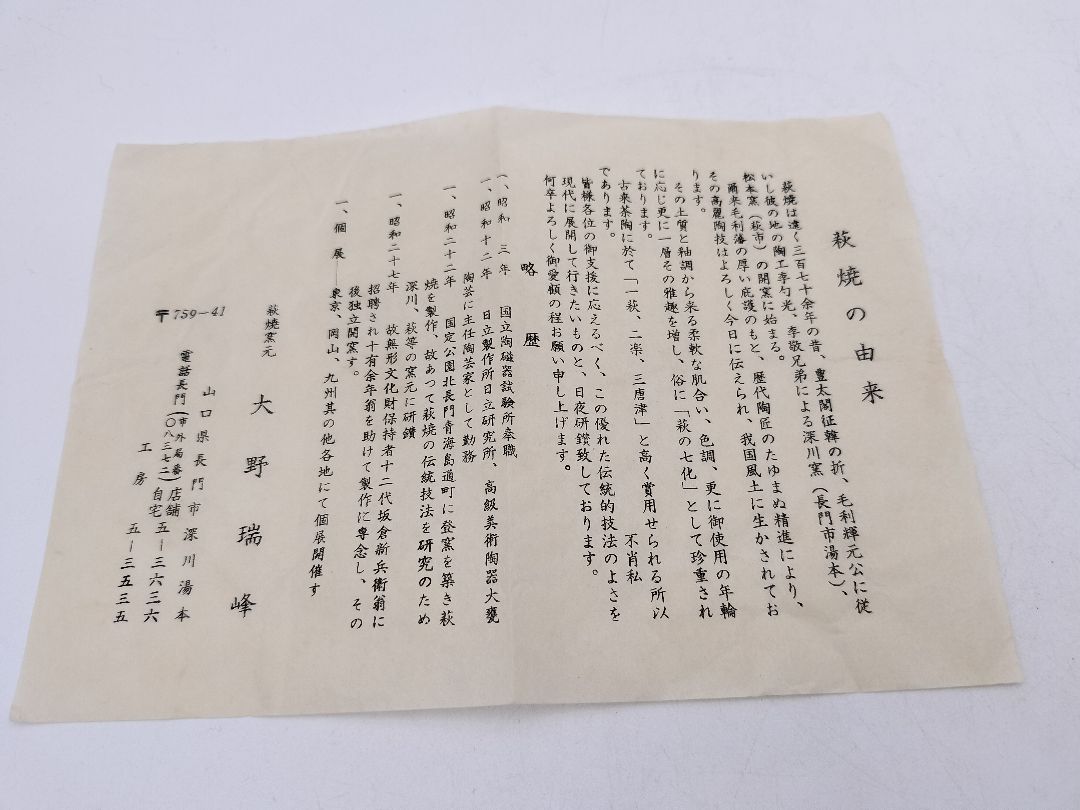 萩焼の由来
萩焼は遠く三百七十余年の昔、豊太閤征韓の折、毛利輝元公に従
いし彼の地の陶工李勺光、李敬兄弟による深川窯（長門市湯本）、
松本窯（萩市）の開窯に始まる。
爾来毛利藩の厚い庇護のもと、歴代陶匠のたゆまぬ精進により、
その高麗陶技はよろしく今日に伝えられ、我国風土に生かされてお
ります。
その土質と釉調から来る柔軟な肌合い、色調、更に御使用の年輪
に応じ更に一層その雅趣を増し、俗に「萩の七化」として珍重され
ております。
古来茶陶に於て「一萩、二楽、三唐津」と高く賞用せられる所以
であります。　不肖私
皆様各位の御支援に応えるべく、この優れた伝統的技法のよさを
現代に展開して行きたいものと、日夜研鑚致しております。
何卒よろしく御愛顧の程お願い申し上げます。
略歴
一、昭和　三年　国立陶磁器試験所奉職
一、昭和十二年　日立製作所日立研究所、高級美術陶器大甕
陶芸に主任陶芸家として勤務
一、昭和二十二年　国定公園北長門青海島通町に登窯を築き萩
焼を製作、故あつて萩焼の伝統技法を研究のため
深川、萩等の窯元に研鑚
一、昭和二十七年　故無形文化財保持者十二代坂倉新兵衛翁に
招聘され十有余年翁を助けて製作に専念し、その
後独立開窯す。
一、個　展——東京、岡山、九州其の他各地にて個展開催す
萩焼窯元　大野瑞峰
〒759-41　山口県長門市深川湯本
電話長門（市外局番〇八三七二）店舗　五—三六三六
自宅
工房　五—三五三五